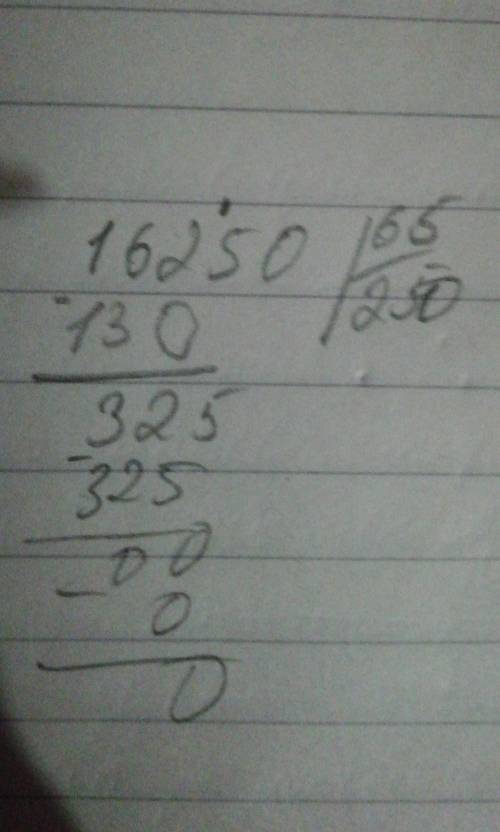 16250 65
-130 250
325
-325
00
-0
0